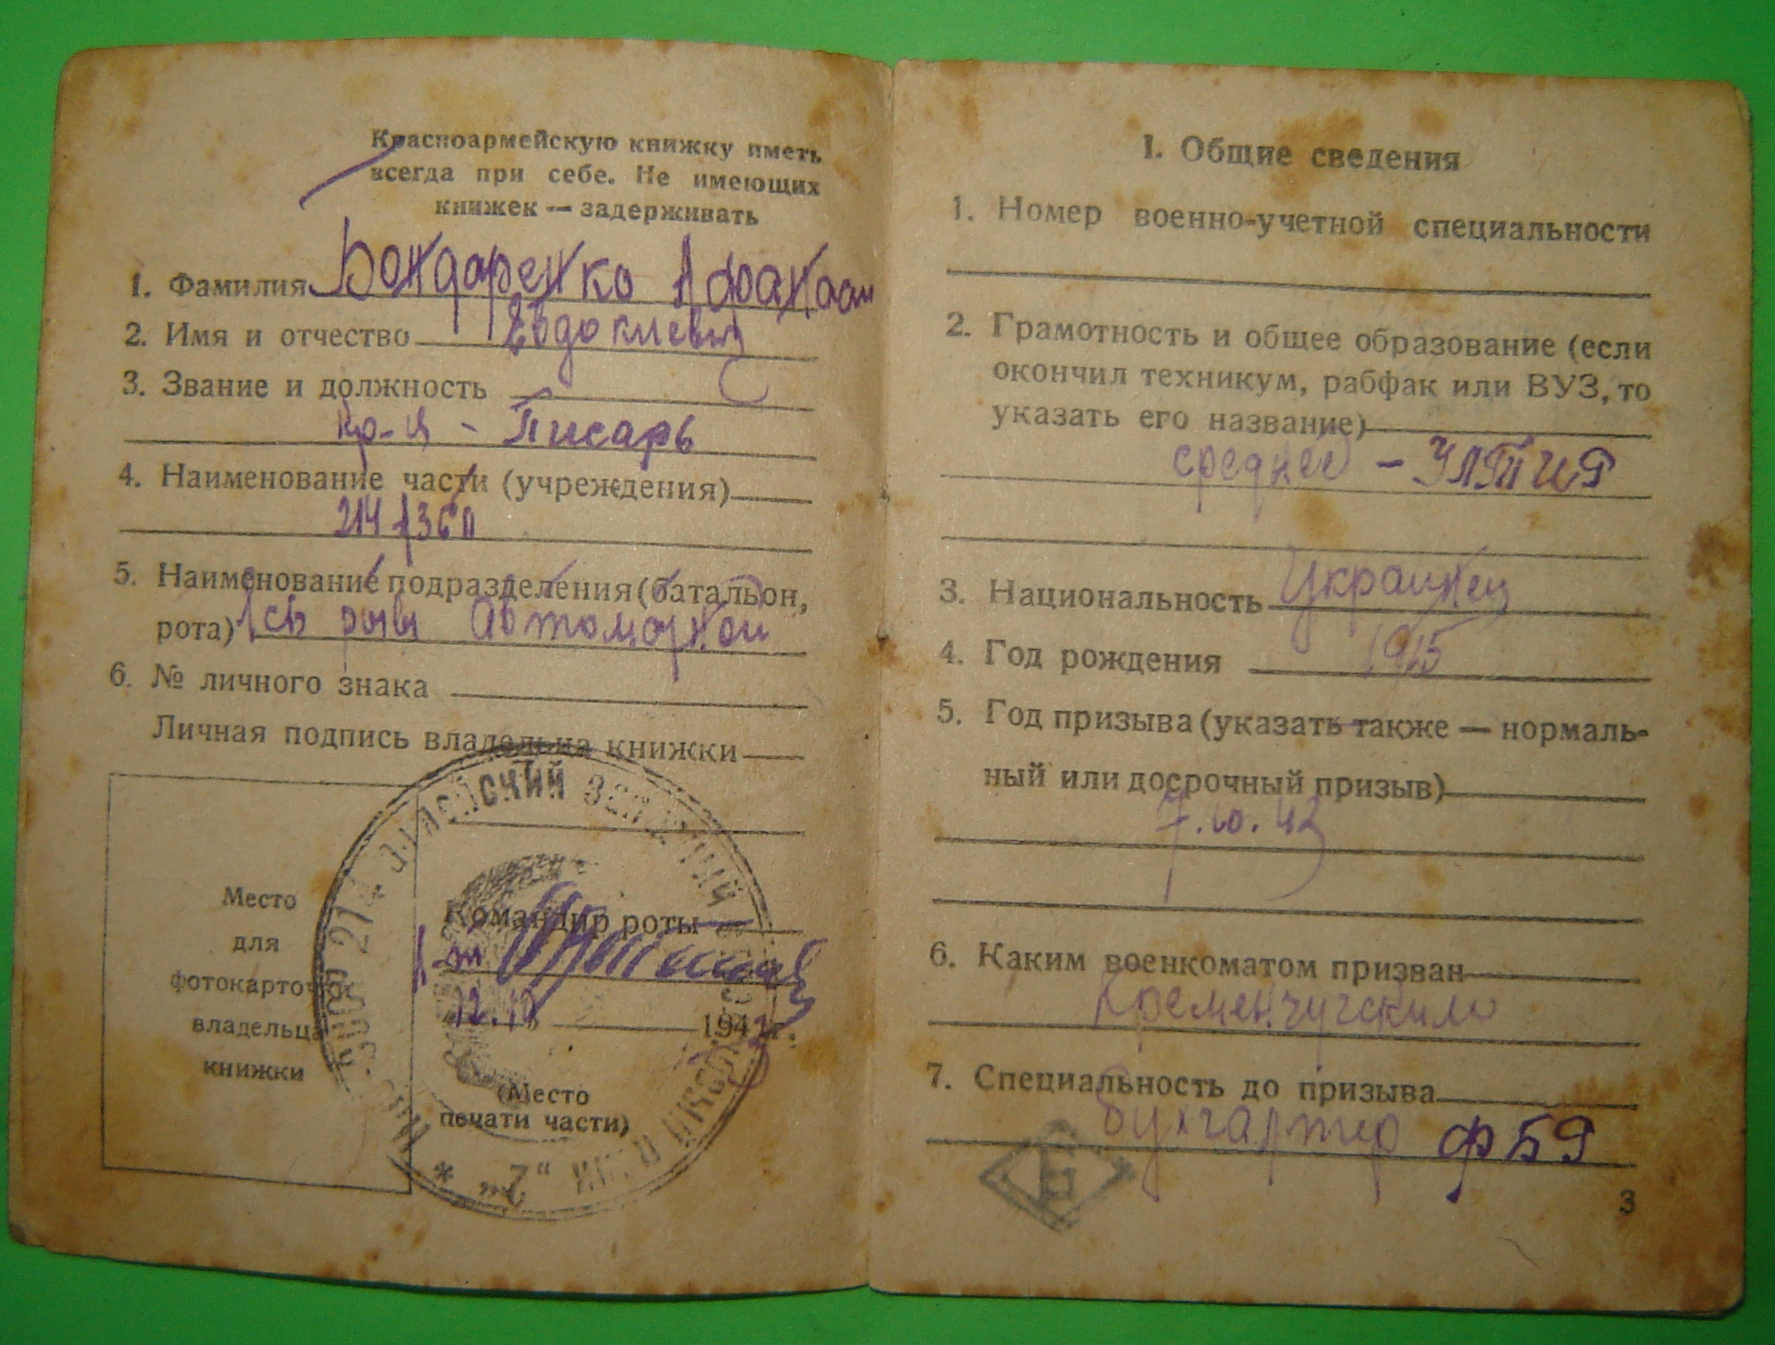 Красноармейскую книжку иметь
всегда при себе. Не имеющих
книжек — задерживать
1. Фамилия Бондаренко Афанасий
2. Имя и отчество Евдокиевич
3. Звание и должность
кр-ц - Писарь
4. Наименование части (учреждения)
5. Наименование подразделения (батальон,
рота)
6. № личного знака
Личная подпись владельца книжки
Место
для
фотокарточки
владельца
книжки
Командир роты
12.10 194 г.
(Место
печати части)
I. Общие сведения
1. Номер военно-учетной специальности
2. Грамотность и общее образование (если
окончил техникум, рабфак или ВУЗ, то
указать его название)
среднее -
3. Национальность Украинец
4. Год рождения 1915
5. Год призыва (указать также — нормаль-
ный или досрочный призыв)
7.10.43
6. Каким военкоматом призван
Кременчугским
7. Специальность до призыва
Бухгалтер
Б
3